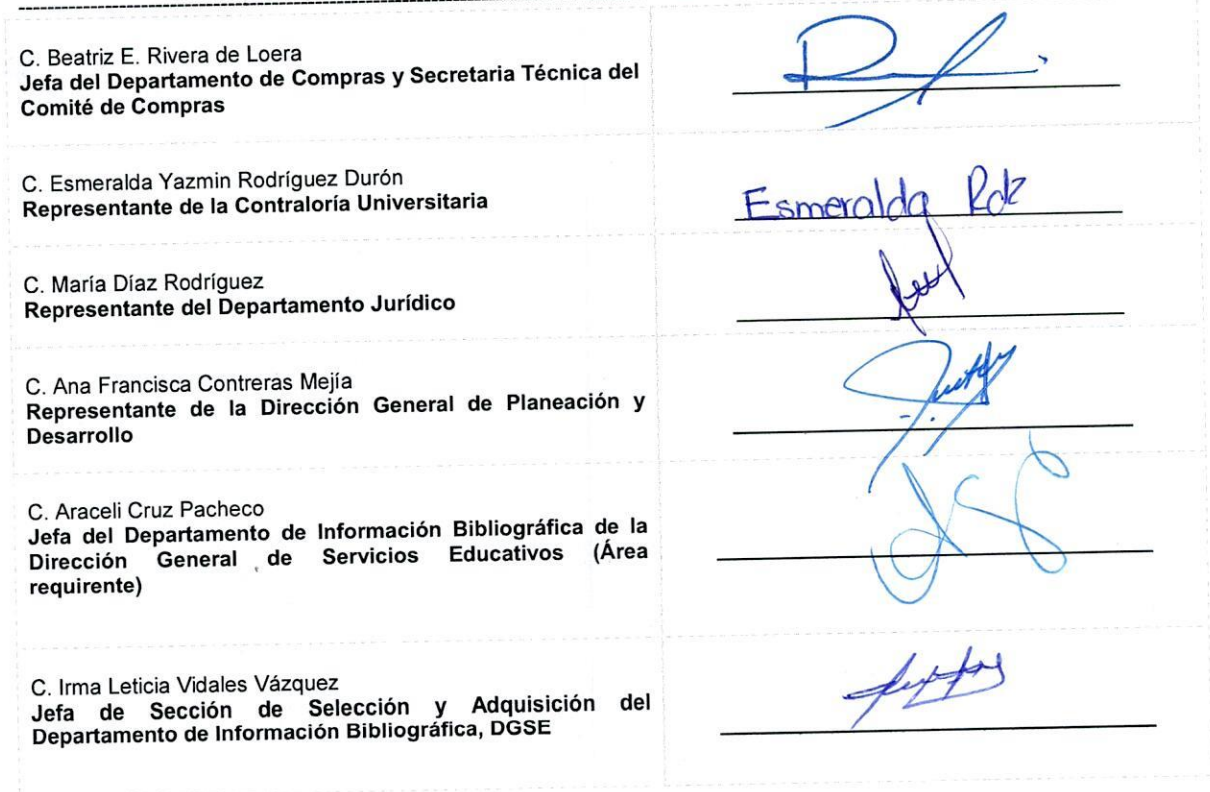 C. Beatriz E. Rivera de Loera
Jefa del Departamento de Compras y Secretaria Técnica del
Comité de Compras
C. Esmeralda Yazmin Rodríguez Durón
Representante de la Contraloría Universitaria
Esmeralda Rdz
C. María Díaz Rodríguez
Representante del Departamento Jurídico
C. Ana Francisca Contreras Mejía
Representante de la Dirección General de Planeación y
Desarrollo
C. Araceli Cruz Pacheco
Jefa del Departamento de Información Bibliográfica de la
Dirección General de Servicios Educativos (Área
requirente)
C. Irma Leticia Vidales Vázquez
Jefa de Sección de Selección y Adquisición del
Departamento de Información Bibliográfica, DGSE